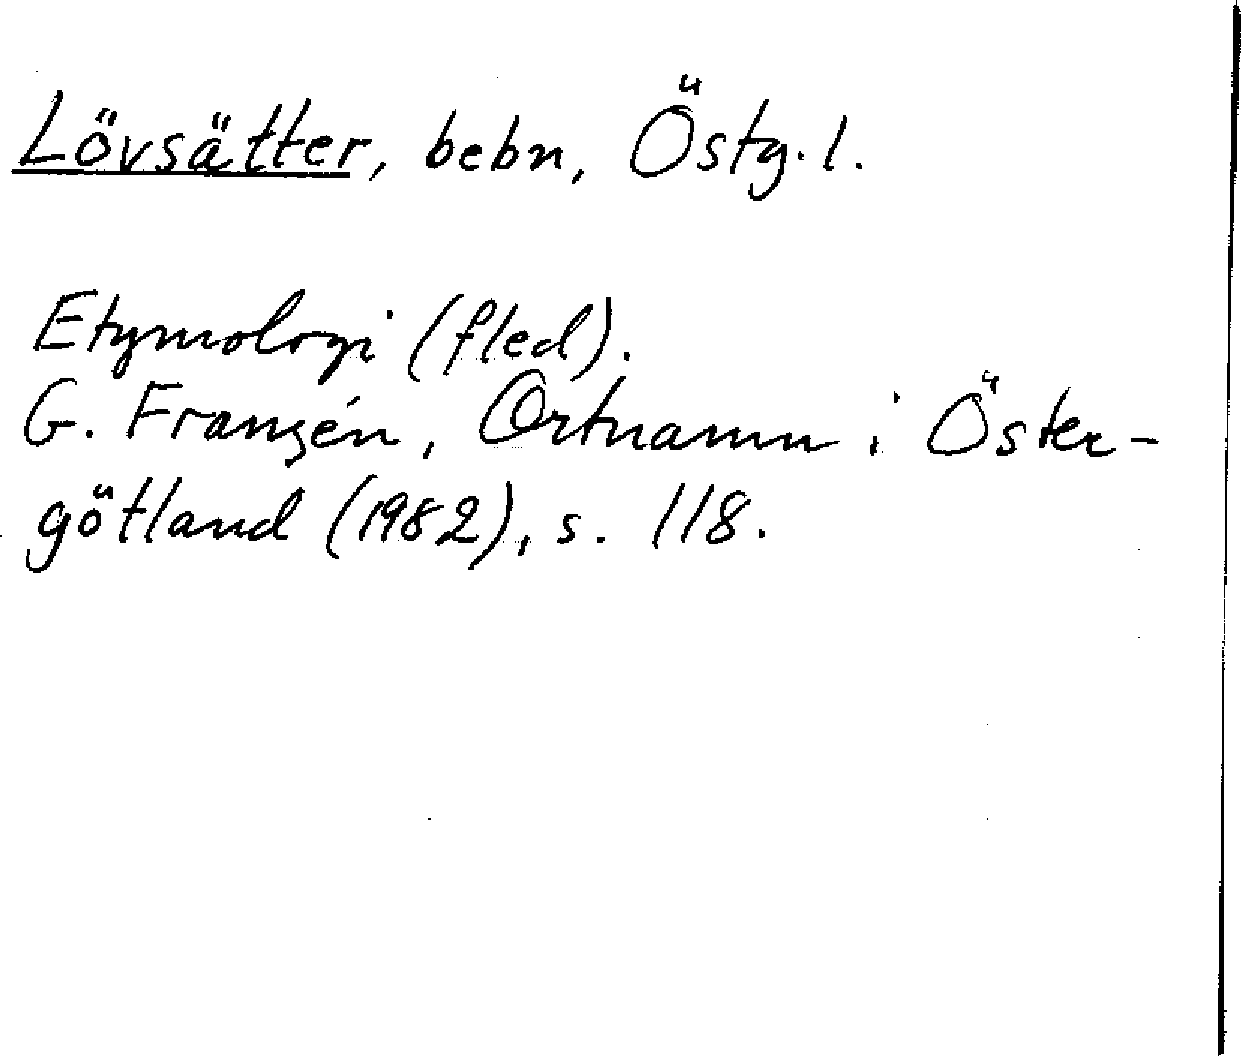 Lövsätter, bebn, Östg. l.
Etymologi (fled).
G. Franzén, Ortnamn i Öster-
götland (1982), s. 118.